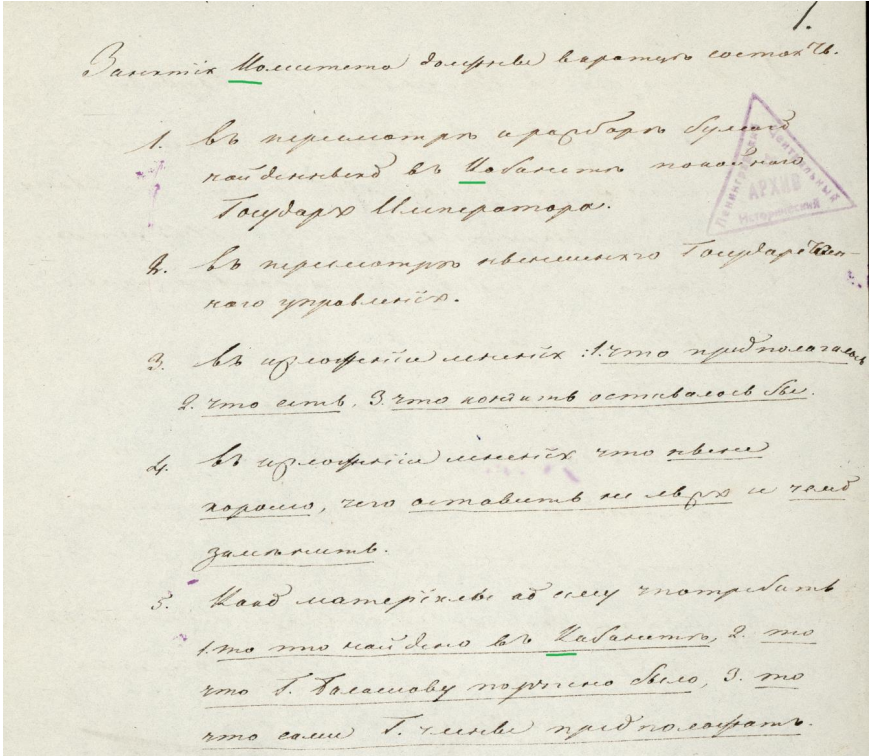 1.
Занятія Комитета должны вкратцѣ состоять.
1. въ пересмотрѣ и разборѣ бумагъ
найденныхъ въ Кабинетѣ покойнаго
Государя Императора.
2. въ пересмотрѣ нынешняго Государствен-
наго управленія.
3. въ изложеніи мненія: 1. что предполагалось
2. что есть, 3. что кончить оставалось бы.
4. въ изложеніи мненія что ныне
хорошо, чего оставить не льзя и чемъ
заменить.
5. Какъ матеріялы къ сему употребить
1. то что найдено въ Кабинетѣ, 2. то
что Г. Балашову поручено было, 3. то
что сами Г. члены предположатъ.
Ленинградский
Исторический
АРХИВ